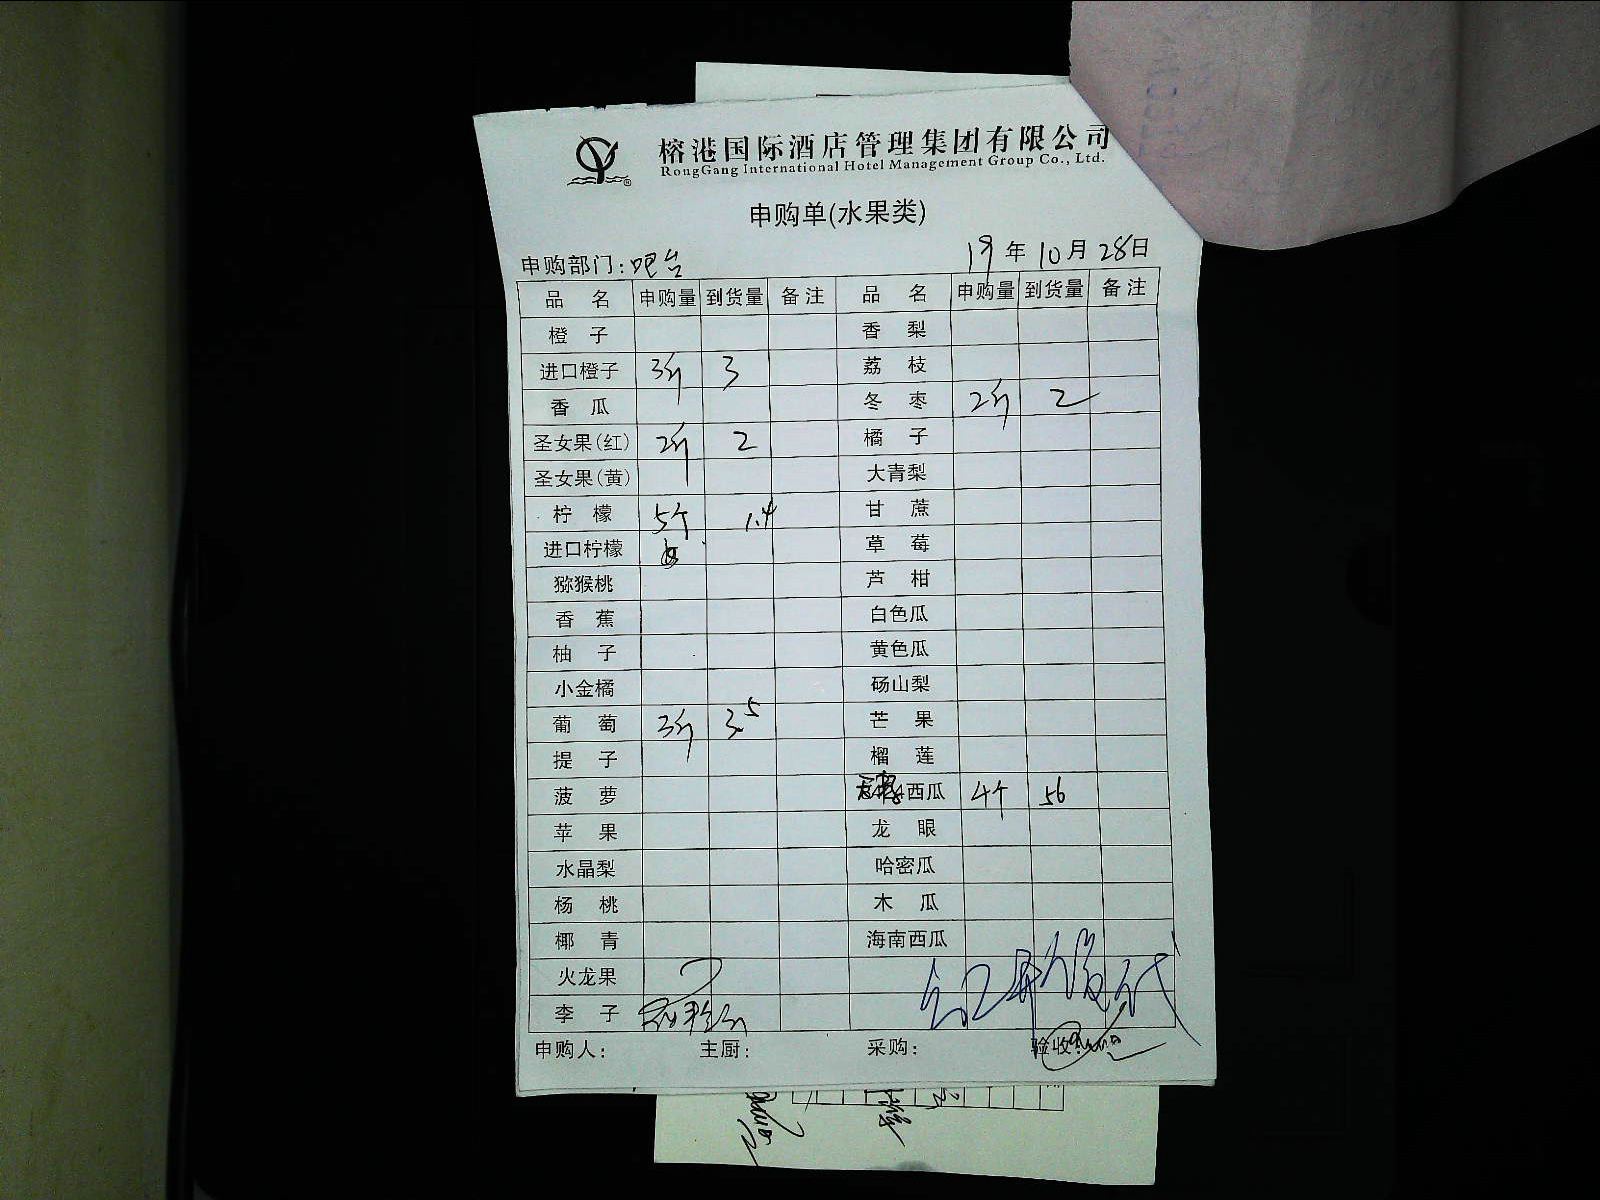 榕港国际酒店管理集团有限公司
RongGang International Hotel Management Group Co., Ltd.
申购单(水果类)
申购部门:吧台 19年10月28日
品名 申购量 到货量 备注 品名 申购量 到货量 备注
橙子 香梨
进口橙子 3斤 3 荔枝
香瓜 冬枣 2斤 2
圣女果(红) 2斤 2 橘子
圣女果(黄) 大青梨
柠檬 5个 1.4 甘蔗
进口柠檬 草莓
猕猴桃 芦柑
香蕉 白色瓜
柚子 黄色瓜
小金橘 砀山梨
葡萄 3斤 3.5 芒果
提子 榴莲
菠萝 西瓜 4个 56
苹果 龙眼
水晶梨 哈密瓜
杨桃 木瓜
椰青 海南西瓜
火龙果
李子
申购人: 主厨: 采购: 验收: